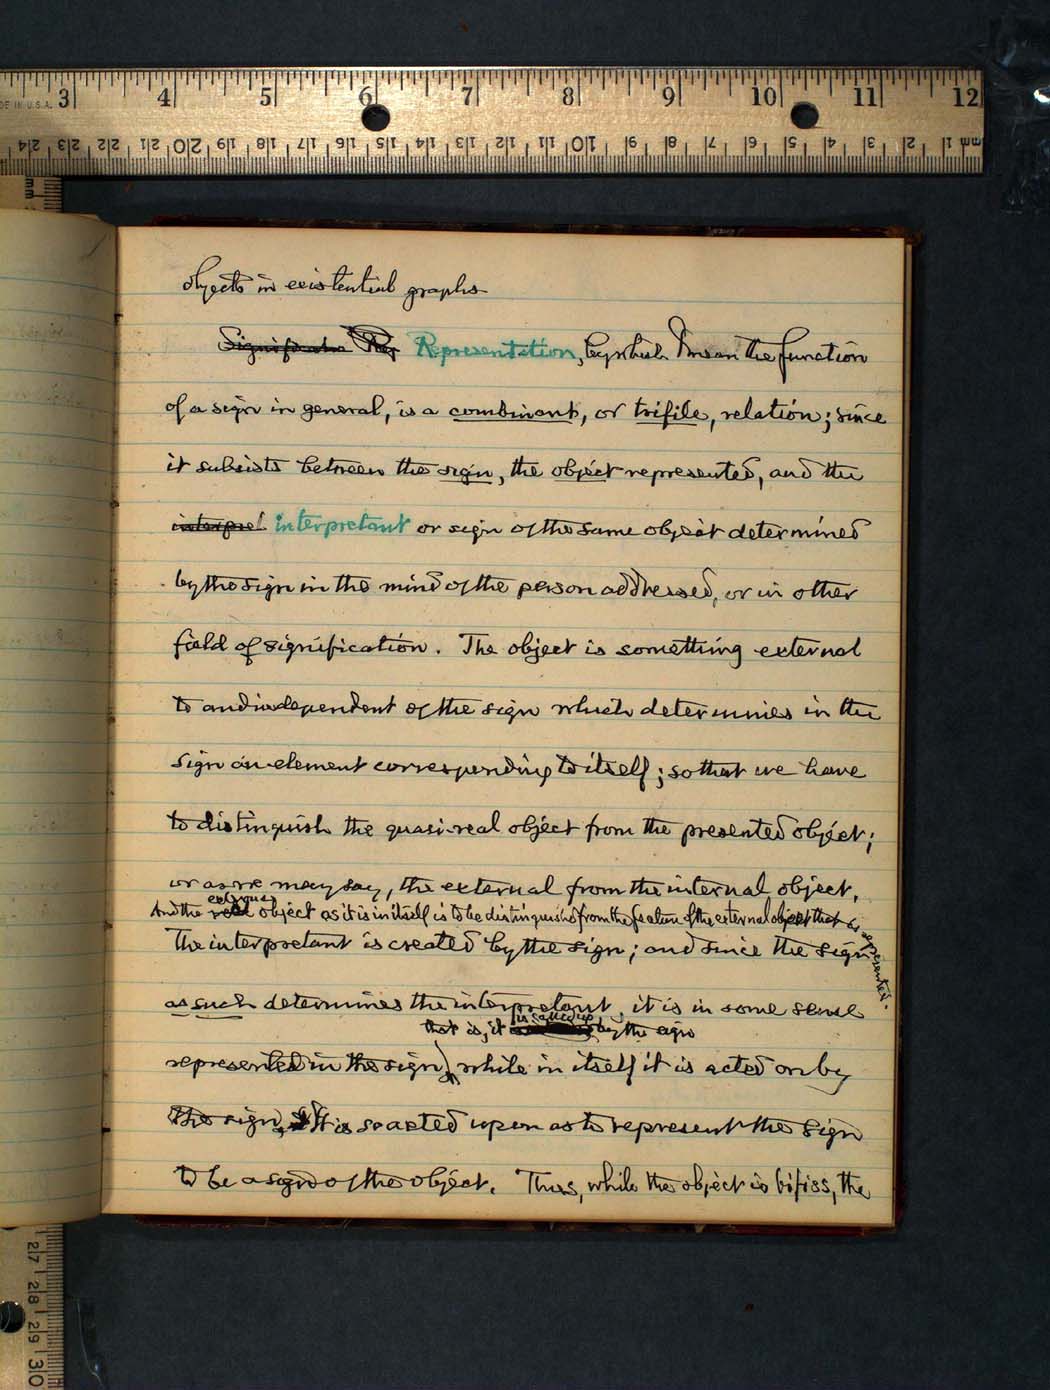 MADE IN U.S.A. 3 4 5 6 7 8 9 10 11 12
24 23 22 21 20 19 18 17 16 15 14 13 12 11 10 9 8 7 6 5 4 3 2 1 mm
mm
objects in existential graphs
Representation, by which I mean the function
of a sign in general, is a combinant, or trifile, relation; since
it subsists between the sign, the object represented, and the
interpret interpretant or sign of the same object determined
by the sign in the mind of the person addressed, or in other
field of signification. The object is something external
to and independent of the sign which determines in the
sign an element corresponding to itself; so that we have
to distinguish the quasi-real object from the presented object;
or as we may say, the external from the internal object.
And the real object as it is in itself is to be distinguished from the feature of the external object that is represented.
The interpretant is created by the sign; and since the sign
as such determines the interpretant, it is in some sense
that is, it is called up by the sign
represented in the sign, while in itself it is acted on by
the sign, It is so acted upon as to represent the sign
to be a sign of the object. Thus, while the object is bifiss, the
27 28 29 30